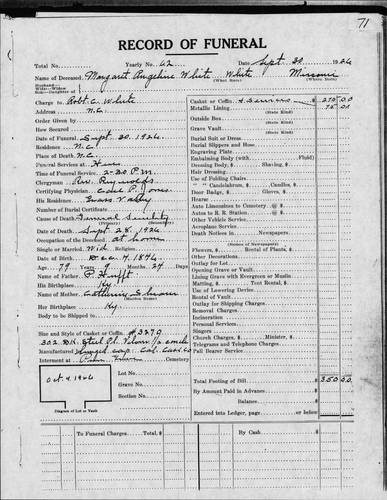 71
RECORD OF FUNERAL
Total No. Yearly No. 62 Date Sept. 30 1926
Name of Deceased Margaret Angeline White White Missouri
(What Race) (Where Born)
Husband—
Wife—Widow
Son—Daughter of
Charge to Robt. C. White
Address N.C.
Order Given by
How Secured
Date of Funeral Sept. 30. 1926.
Residence N.C.
Place of Death N.C.
Funeral Services at
Time of Funeral Service 2-30 P.M.
Clergyman Rev. Reynolds
Certifying Physician P. Jones
His Residence
Number of Burial Certificate
Cause of Death Senility
(Primary) (Secondary)
Date of Death Sept. 28. 1926
Occupation of the Deceased at home
Single or Married Wid. Religion
Date of Birth Dec. 4. 1846
Age 79 Years 9 Months 24 Days
Name of Father P.
His Birthplace Ky.
Name of Mother
(Maiden Name)
Her Birthplace Ky.
Body to be Shipped to
Size and Style of Casket or Coffin #3279
302 Steel
Manufactured
Interment at Cemetery
Oct 4 1926
Diagram of Lot or Vault
Lot No.
Grave No.
Section No.
Casket or Coffin & Services $ 275.00
Metallic Lining 75.00
(State Kind)
Outside Box
(State Kind)
Grave Vault
(State Kind)
Burial Suit or Dress
Burial Slippers and Hose
Engraving Plate
Embalming Body (with Fluid)
Dressing Body, $ Shaving, $
Hair Dressing
Use of Folding Chairs
" " Candelabrum, $ Candles, $
Door Badge, $ Gloves, $
Hearse
Auto Limousines to Cemetery @ $
Autos to R. R. Station @ $
Other Vehicle Service
Aeroplane Service
Death Notices in Newspapers
(Names of Newspapers)
Flowers, $ Rental of Plants, $
Other Decorations
Outlay for Lot
Opening Grave or Vault
Lining Grave with Evergreen or Muslin
Matting, $ Tent Rental, $
Use of Lowering Device
Rental of Vault
Outlay for Shipping Charges
Removal Charges
Incineration
Personal Services
Singers
Church Charges, $ Minister, $
Telegrams and Telephone Charges
Pall Bearer Service
Total Footing of Bill $ 350.00
By Amount Paid in Advance
Balance
Entered into Ledger, page or below
To Funeral Charges Total, $ By Cash $